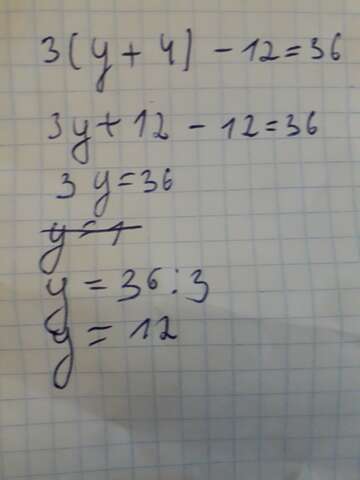 3(y + 4) - 12 = 36
3y + 12 - 12 = 36
3y = 36
y = 1
y = 36 : 3
y = 12